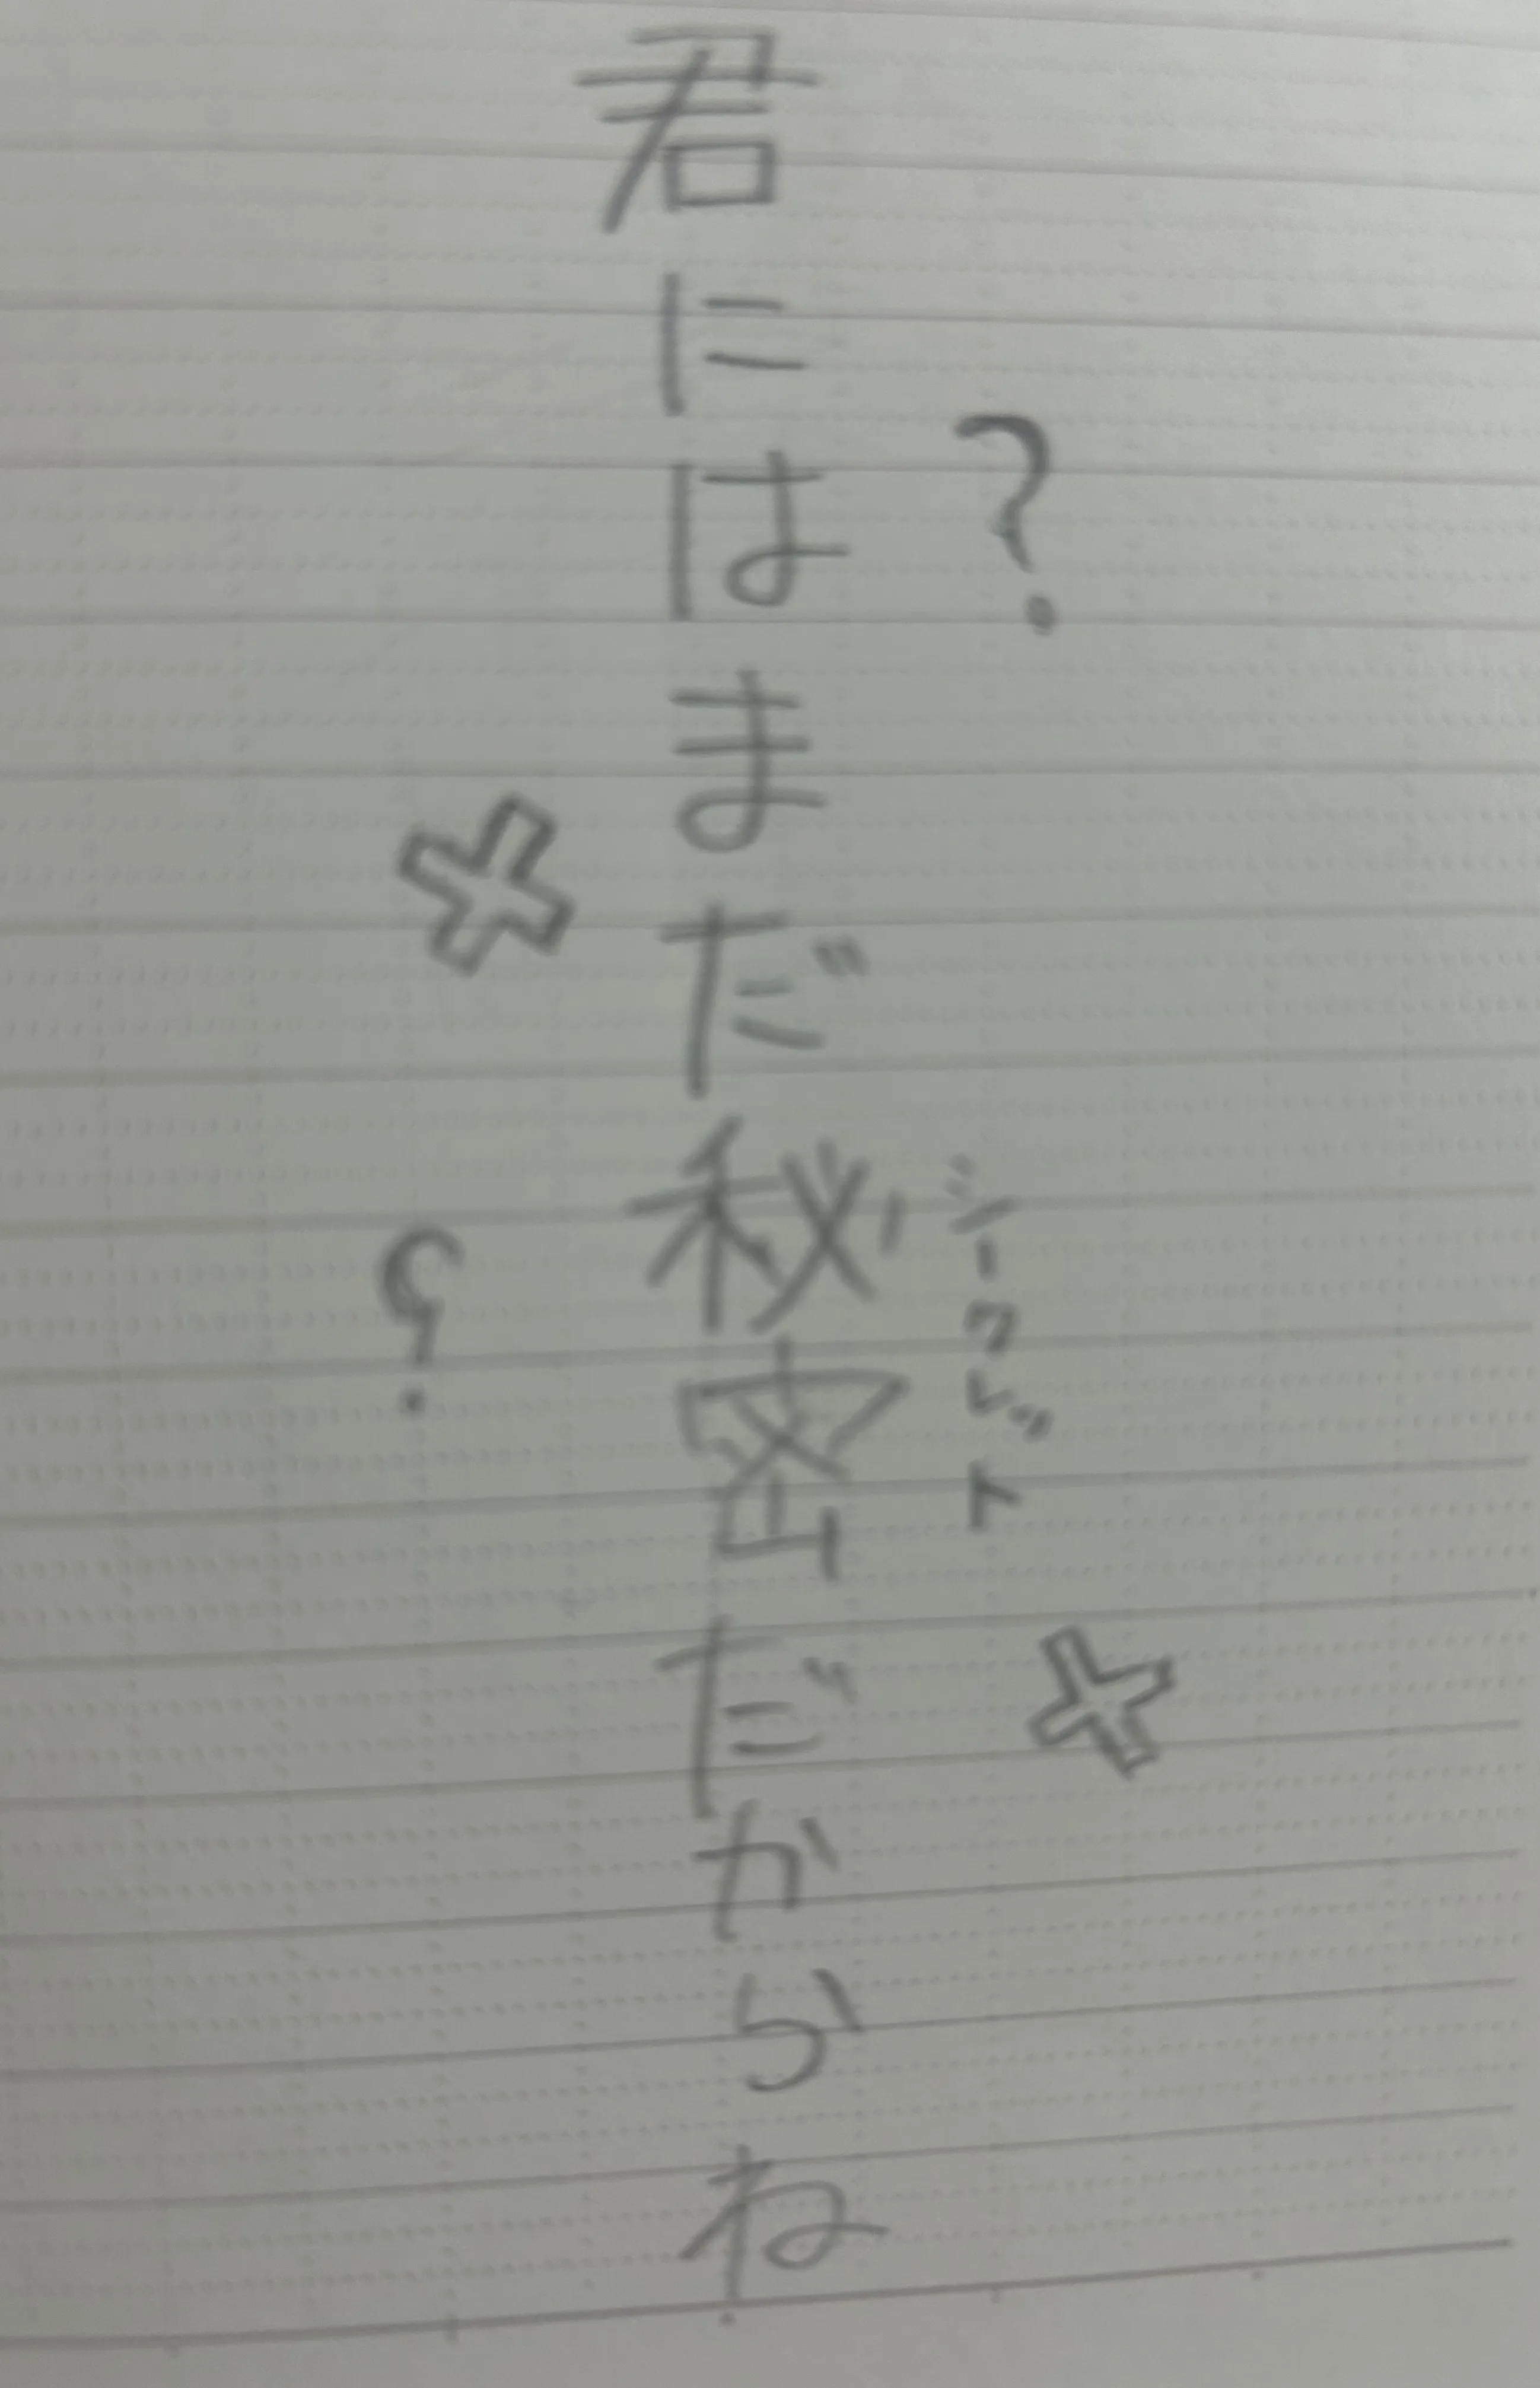 君にはまだ秘密だからね
シークレット
?
?